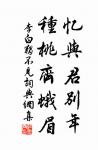 忆与君别年
种桃齐蛾眉
李白鹦不见词典网集